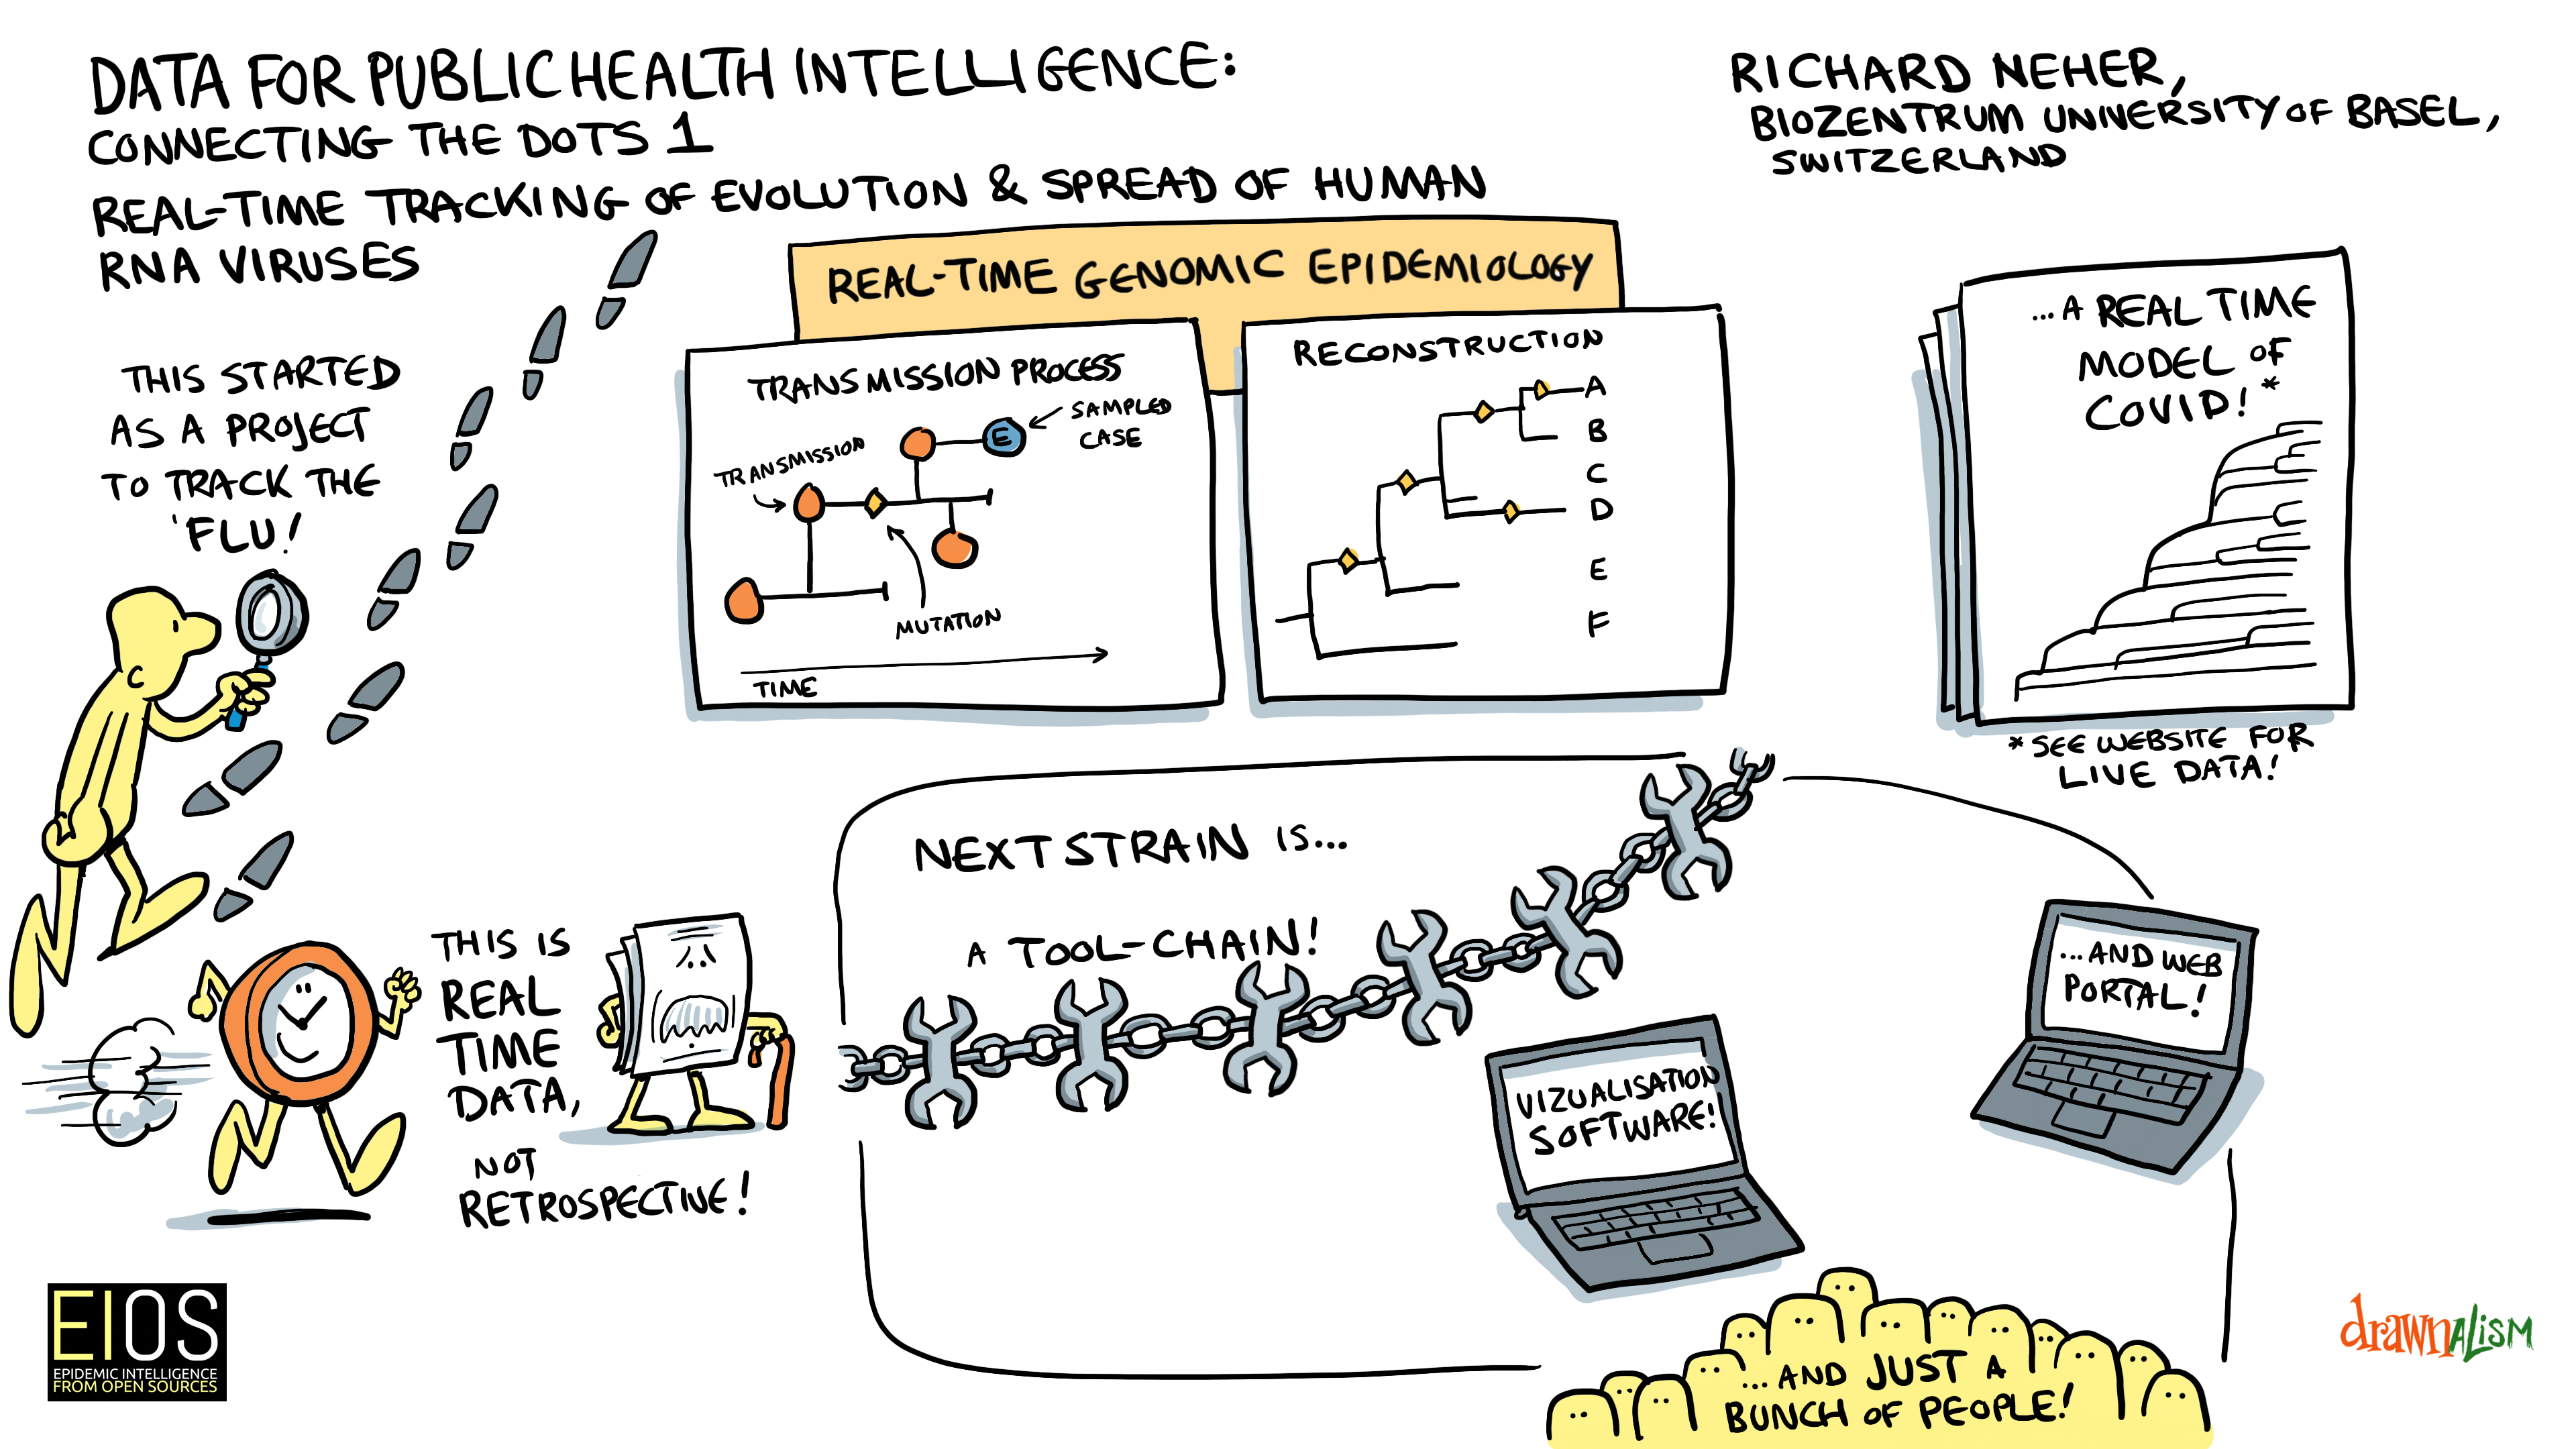 DATA FOR PUBLIC HEALTH INTELLIGENCE:
CONNECTING THE DOTS 1
REAL-TIME TRACKING OF EVOLUTION & SPREAD OF HUMAN
RNA VIRUSES
RICHARD NEHER,
BIOZENTRUM UNIVERSITY OF BASEL,
SWITZERLAND
THIS STARTED
AS A PROJECT
TO TRACK THE
'FLU!
REAL-TIME GENOMIC EPIDEMIOLOGY
TRANSMISSION PROCESS
SAMPLED
CASE
E
TRANSMISSION
MUTATION
TIME
RECONSTRUCTION
A
B
C
D
E
F
...A REAL TIME
MODEL OF
COVID!*
* SEE WEBSITE FOR
LIVE DATA!
THIS IS
REAL
TIME
DATA,
NOT
RETROSPECTIVE!
NEXTSTRAIN IS...
A TOOL-CHAIN!
VIZUALISATION
SOFTWARE!
...AND WEB
PORTAL!
...AND JUST A
BUNCH OF PEOPLE!
EIOS
EPIDEMIC INTELLIGENCE
FROM OPEN SOURCES
drawnALISM